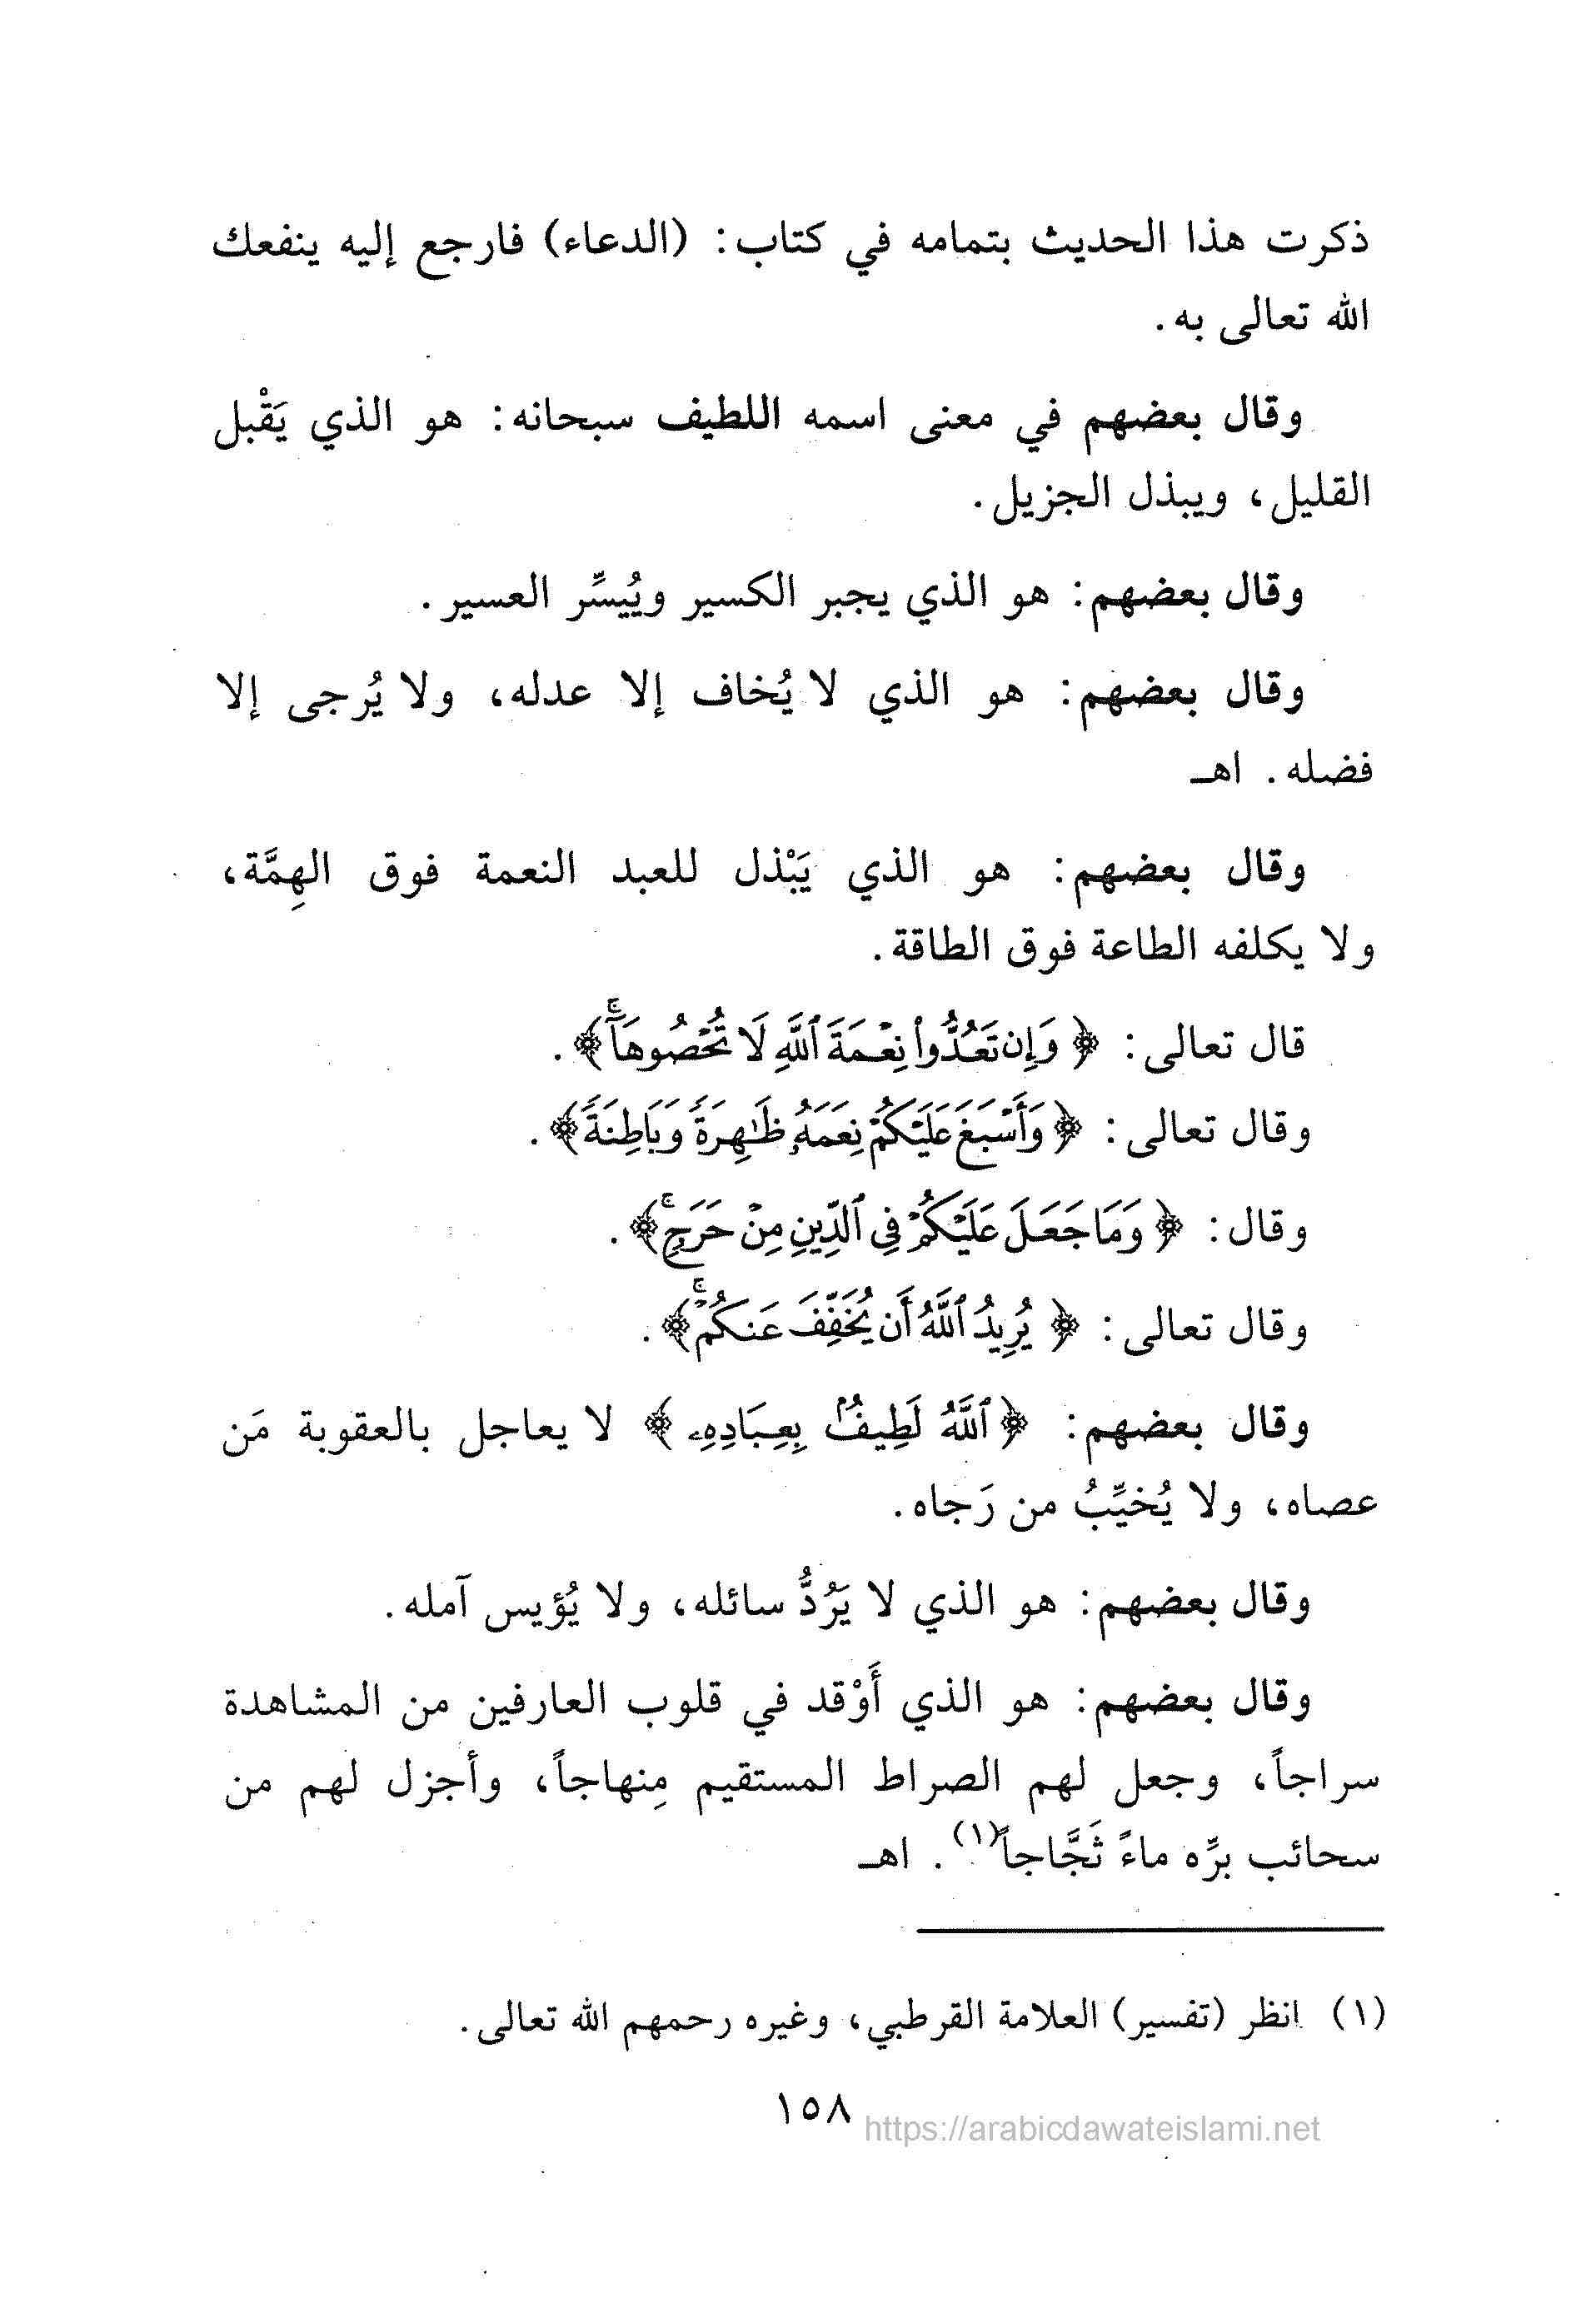 ذكرت هذا الحديث بتمامه في كتاب: (الدعاء) فارجع إليه ينفعك
الله تعالى به.
وقال بعضهم في معنى اسمه اللطيف سبحانه: هو الذي يَقْبل
القليل، ويبذل الجزيل.
وقال بعضهم: هو الذي يجبر الكسير ويُيسِّر العسير.
وقال بعضهم: هو الذي لا يُخاف إلا عدله، ولا يُرجى إلا
فضله. اهـ
وقال بعضهم: هو الذي يَبْذل للعبد النعمة فوق الهِمَّة،
ولا يكلفه الطاعة فوق الطاقة.
قال تعالى: ﴿وَإِن تَعُدُّوا۟ نِعْمَةَ ٱللَّهِ لَا تُحْصُوهَآ ۚ﴾.
وقال تعالى: ﴿وَأَسْبَغَ عَلَيْكُمْ نِعَمَهُۥ ظَـٰهِرَةً وَبَاطِنَةً ۗ﴾.
وقال: ﴿وَمَا جَعَلَ عَلَيْكُمْ فِى ٱلدِّينِ مِنْ حَرَجٍ ۚ﴾.
وقال تعالى: ﴿يُرِيدُ ٱللَّهُ أَن يُخَفِّفَ عَنكُمْ ۚ﴾.
وقال بعضهم: ﴿ٱللَّهُ لَطِيفٌۢ بِعِبَادِهِۦ﴾ لا يعاجل بالعقوبة مَن
عصاه، ولا يُخيِّبُ من رَجاه.
وقال بعضهم: هو الذي لا يَرُدُّ سائله، ولا يُؤيس آمله.
وقال بعضهم: هو الذي أَوْقد في قلوب العارفين من المشاهدة
سراجاً، وجعل لهم الصراط المستقيم مِنهاجاً، وأجزل لهم من
سحائب برِّه ماءً ثَجَّاجاً(١). اهـ
(١) انظر (تفسير) العلامة القرطبي، وغيره رحمهم الله تعالى.
١٥٨
https://arabicdawateislami.net